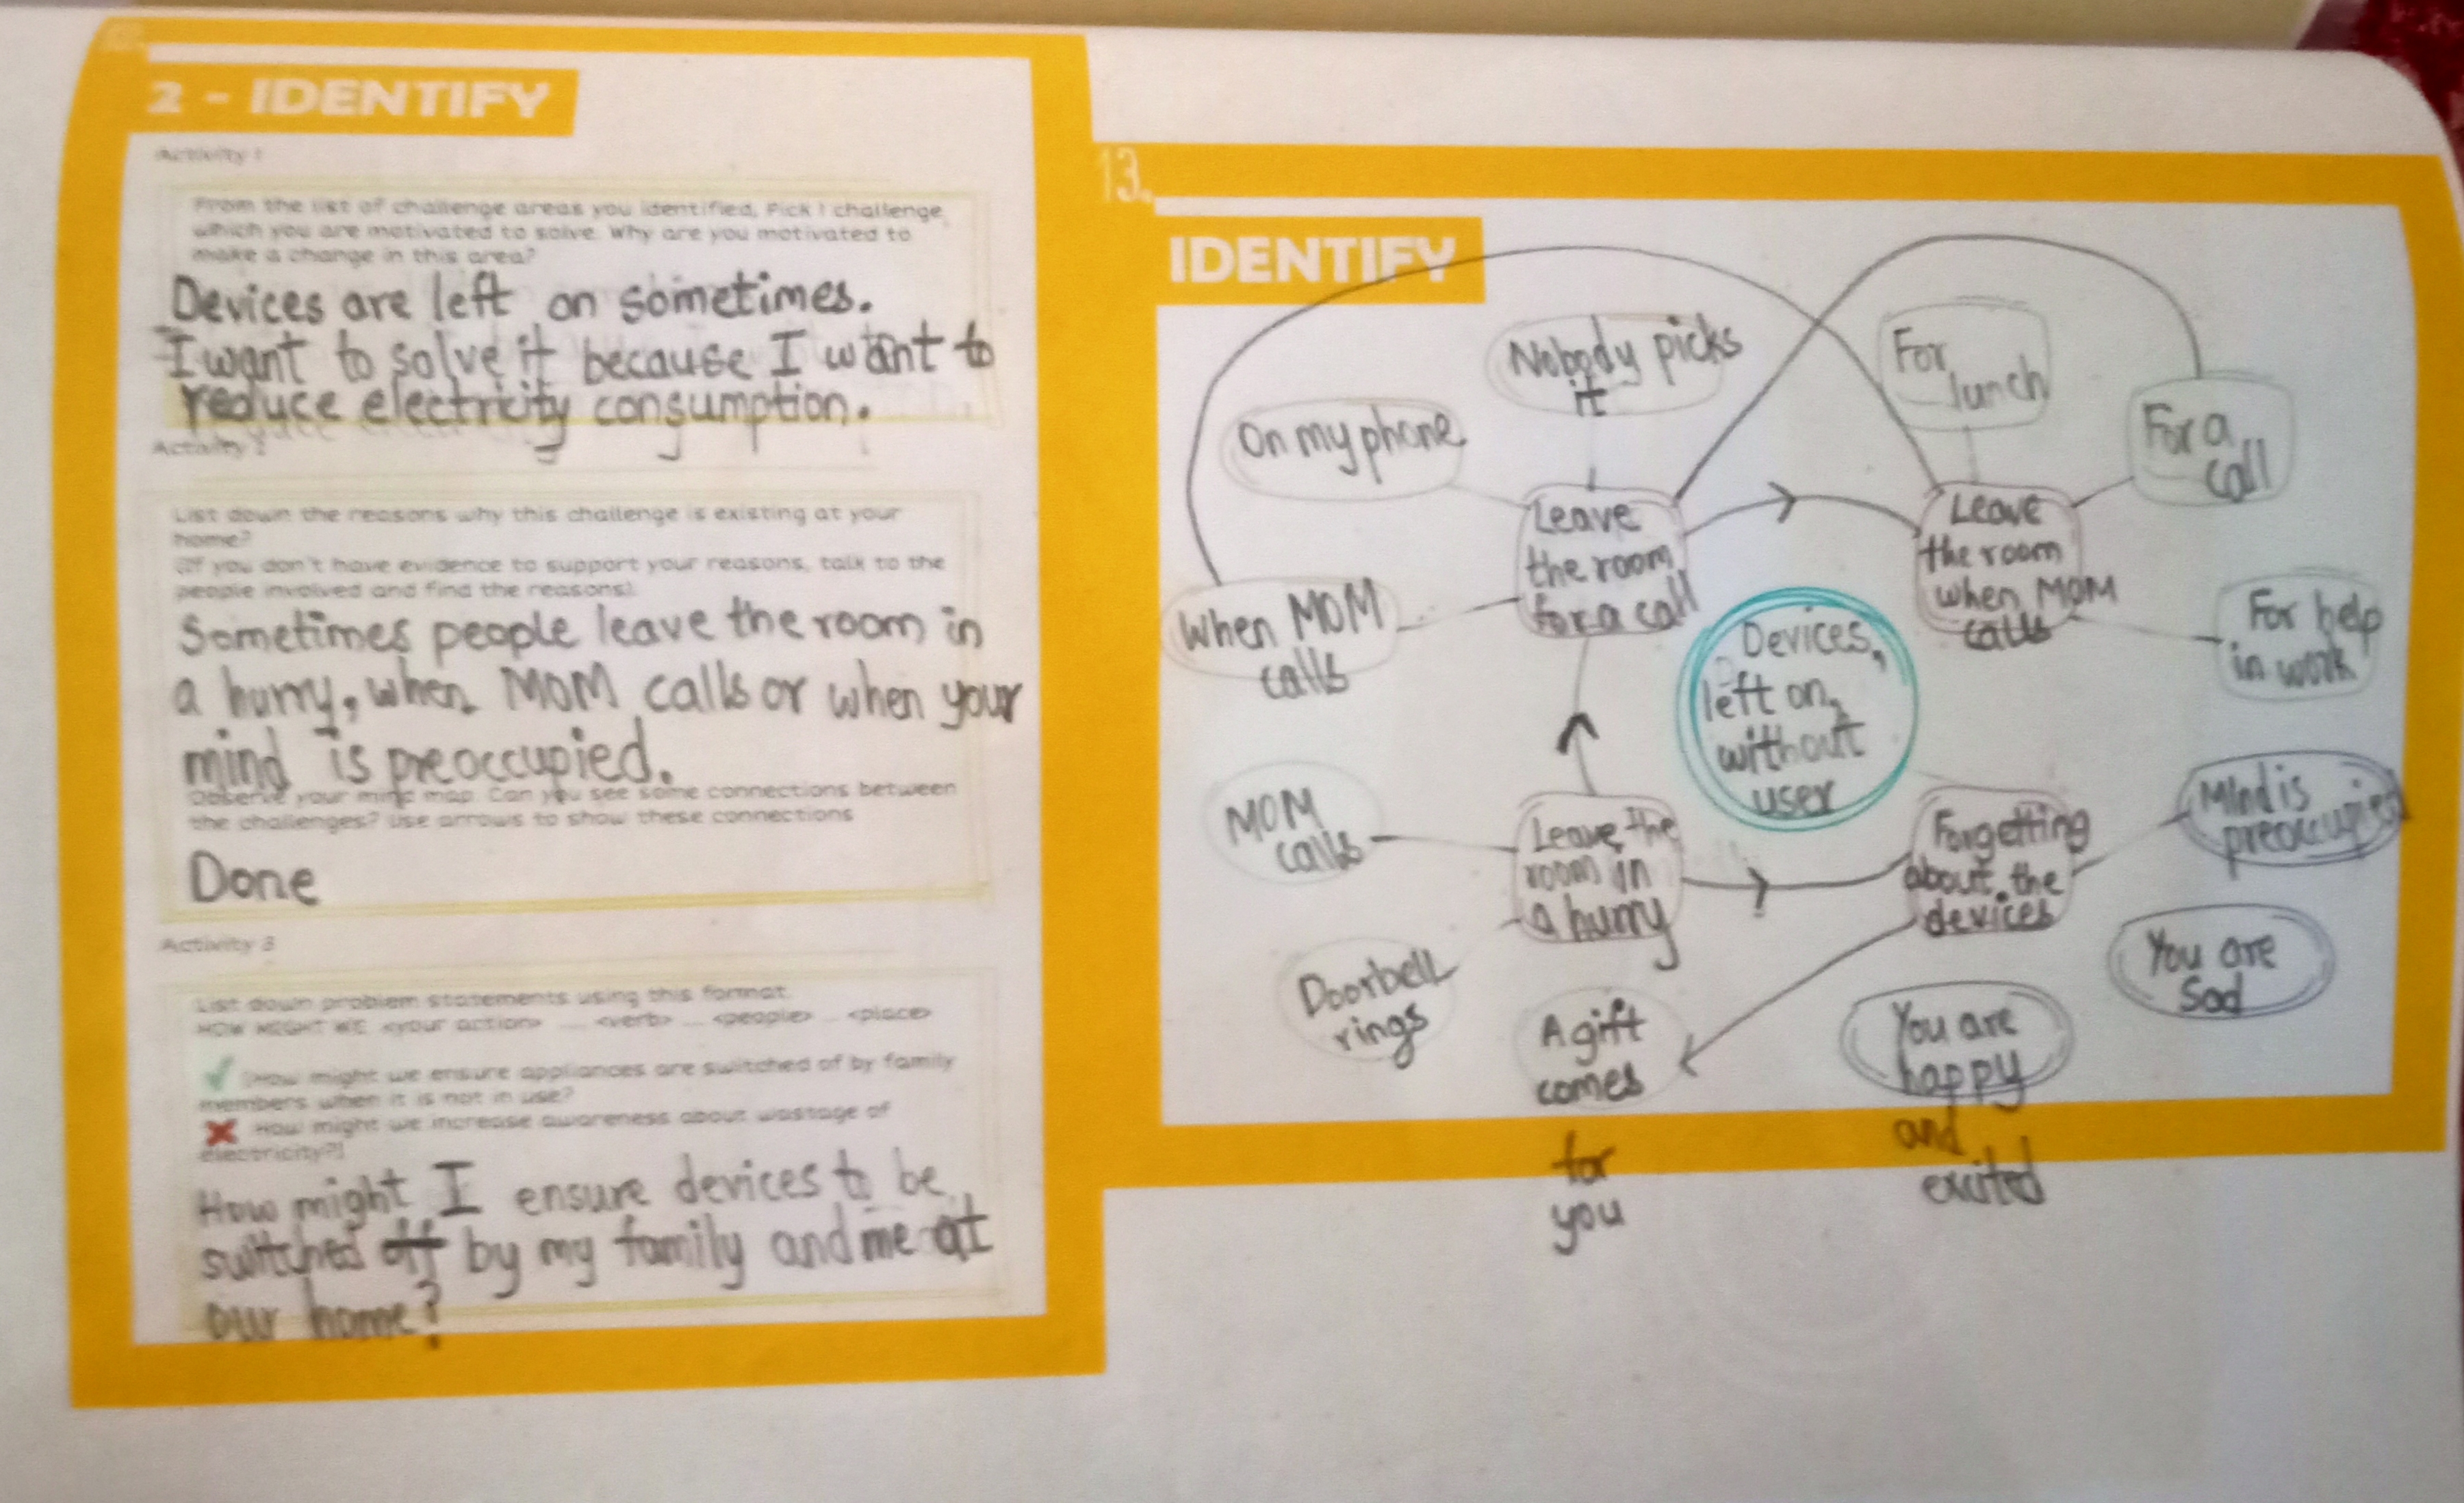 2 - IDENTIFY
Activity 1
From the list of challenge areas you identified, Pick 1 challenge,
which you are motivated to solve. Why are you motivated to
make a change in this area?
Devices are left on sometimes.
I want to solve it because I want to
reduce electricity consumption.
Activity 2
List down the reasons why this challenge is existing at your
home?
(If you don't have evidence to support your reasons, talk to the
people involved and find the reasons)
Sometimes people leave the room in
a hurry, when MOM calls or when your
mind is preoccupied.
Observe your mind map. Can you see some connections between
the challenges? Use arrows to show these connections
Done
Activity 3
List down problem statements using this format.
HOW MIGHT WE <your action> .... <verb> ... <people> .. <place>
(How might we ensure appliances are switched of by family
members when it is not in use?
How might we increase awareness about wastage of
electricity?)
How might I ensure devices to be
switched off by my family and me at
our home?
13.
IDENTIFY
Nobody picks
it
For
lunch
On my phone
For a
call
Leave
the room
for a call
Leave
the room
when MOM
calls
When MOM
calls
Devices,
left on,
without
user
For help
in work
MOM
calls
Leave the
room in
a hurry
Forgetting
about the
devices
Mind is
preoccupied
Doorbell
rings
A gift
comes
for
you
You are
happy
and
excited
You are
Sad